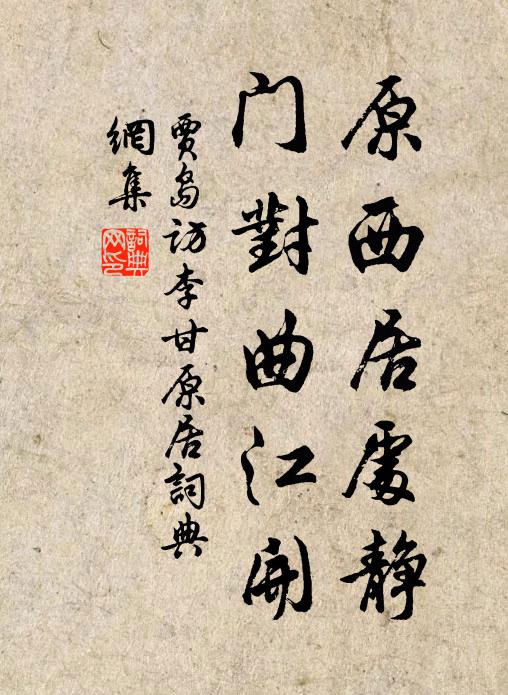 原西居處静
门對曲江開
賈島訪李甘原居詞典
網集
詞典
网印